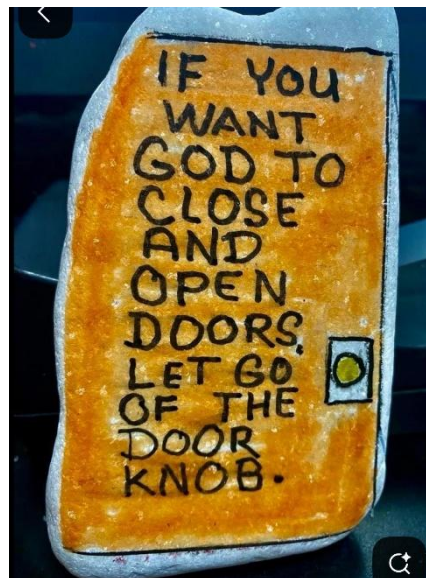 IF YOU
WANT
GOD TO
CLOSE
AND
OPEN
DOORS,
LET GO
OF THE
DOOR
KNOB.